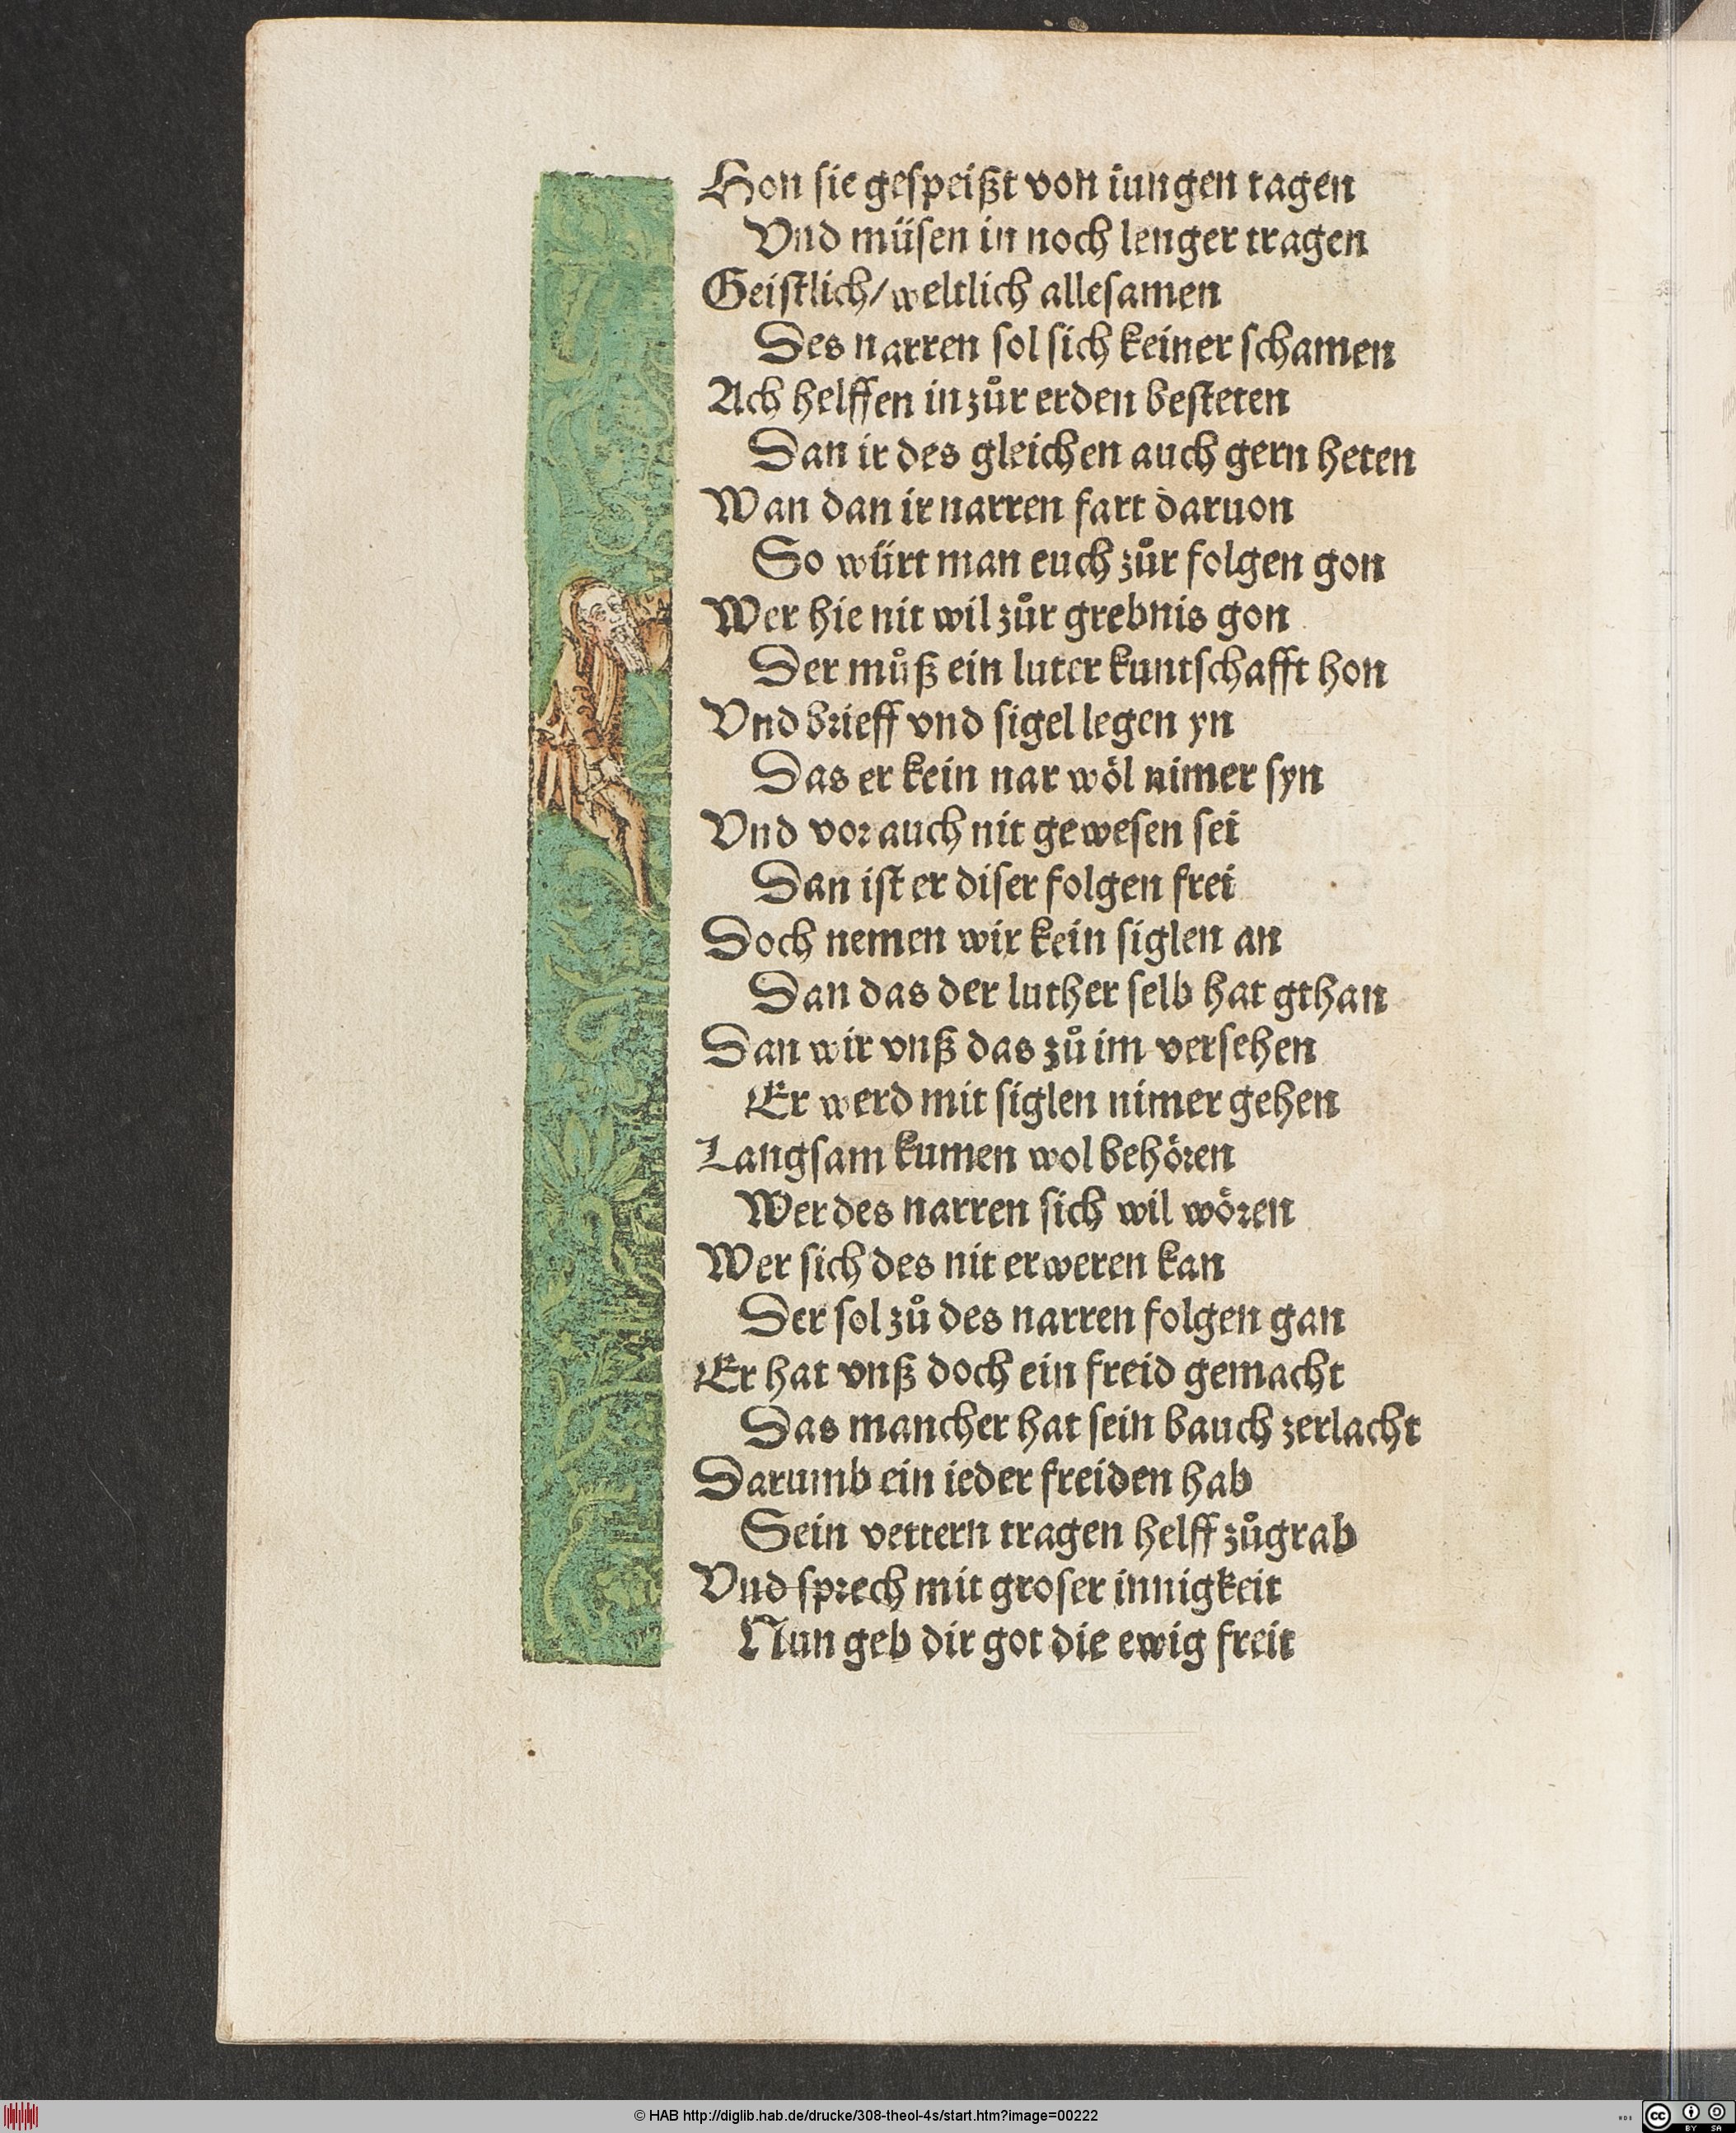 Hon sie gespeißt von iungen tagen
Vnd müsen in noch lenger tragen
Geistlich/ weltlich allesamen
Des narren sol sich keiner schamen
Ach helffen in zůr erden besteten
Dan ir des gleichen auch gern heten
Wan dan ir narren fart daruon
So würt man euch zůr folgen gon
Wer hie nit wil zůr grebnis gon
Der můß ein luter kuntschafft hon
Vnd brieff vnd sigel legen yn
Das er kein nar wöl nimer syn
Vnd vor auch nit gewesen sei
Dan ist er diser folgen frei
Doch nemen wir kein siglen an
Dan das der luther selb hat gthan
Dan wir vnß das zů im versehen
Er werd mit siglen nimer gehen
Langsam kumen wol behören
Wer des narren sich wil wören
Wer sich des nit erweren kan
Der sol zů des narren folgen gan
Er hat vnß doch ein freid gemacht
Das mancher hat sein bauch zerlacht
Darumb ein ieder freiden hab
Sein vettern tragen helff zůgrab
Vnd sprech mit groser innigkeit
Nun geb dir got die ewig freit
© HAB http://diglib.hab.de/drucke/308-theol-4s/start.htm?image=00222
cc BY SA